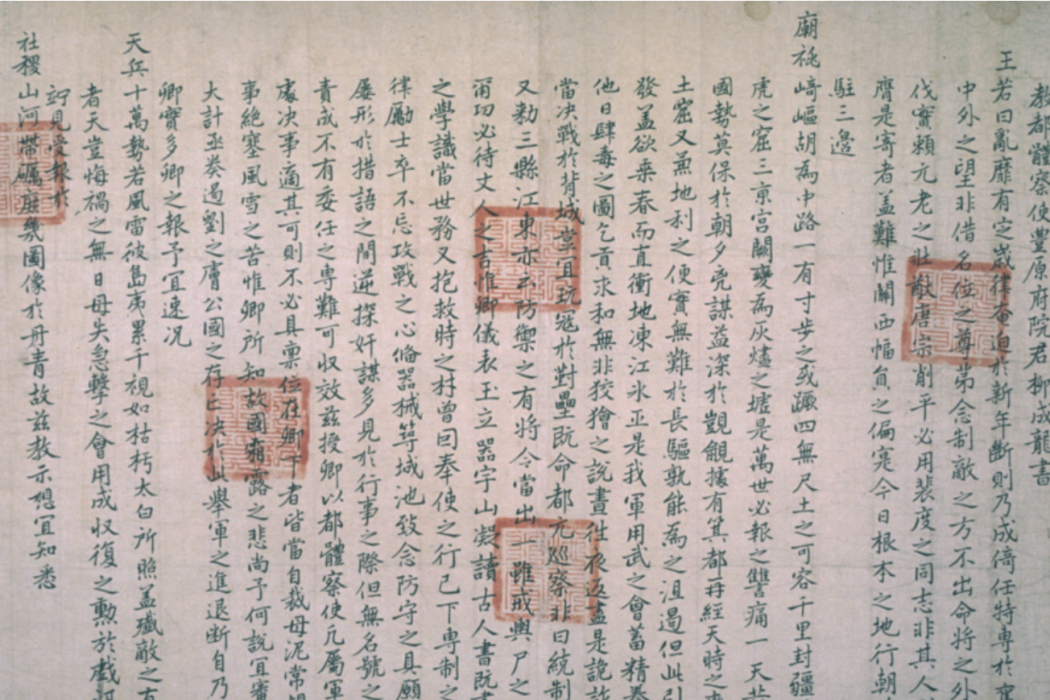 教都體察使豊原府院君柳成龍書
王若曰亂靡有定歲律奄迫於新年斷則乃成倚任特專於
中外之望非借名位之尊第念制敵之方不出命將之
伐實賴元老之壯猷唐宗削平必用裴度之同志非其人
膺是寄者盖難惟關西幅負之偏寔今日根本之地行朝
駐三邊
廟祧崎嶇胡為中路一有寸步之或蹶四無尺土之可容千里封疆
虎之窟三京宮闕變為灰燼之墟是萬世必報之讐痛一天
國勢莫保於朝夕兇謀益深於覬覦據有箕都再經天時之
土窟又無地利之便實無難於長驅孰能為之沮遏但此
發盖欲乗春而直衝地凍江氷正是我軍用武之會畜精
他日肆毒之圖乞貢求和無非狡獪之說晝往夜返盡是詭
當决戰於背城豈宜玩寇於對壘既命都元廵察非曰統制
又勑三縣江東亦云防禦之有將令當出一雖戒輿尸之
㓛必待丈人之吉惟卿儀表玉立器宇山凝讀古人書既
之學識當世務又抱救時之材曾回奉使之行已下專制之
律勵士卒不忘攻戰之心脩器械等城池致念防守之具願
屢形於措語之間逆探奸謀多見於行事之際但無名號之
責成不有委任之專難可収效玆授卿以都體察使凡屬軍
處决事適其可則不必具禀位在卿下者皆當自裁毋泥常
事絶塞風雪之苦惟卿所知故國霜露之悲尚予何說宜
大計亟奏遏劉之膚公國之存亡决於此舉軍之進退斷自乃
卿實多卿之報予宜速况
天兵十萬勢若風雷彼島夷累千視如枯朽太白所照盖殲敵之
者天豈悔禍之無日毋失急擊之會用成収復之勳於戲
竚見受報於
社稷山河帶礪庶幾圖像於丹青故玆教示想宜知悉